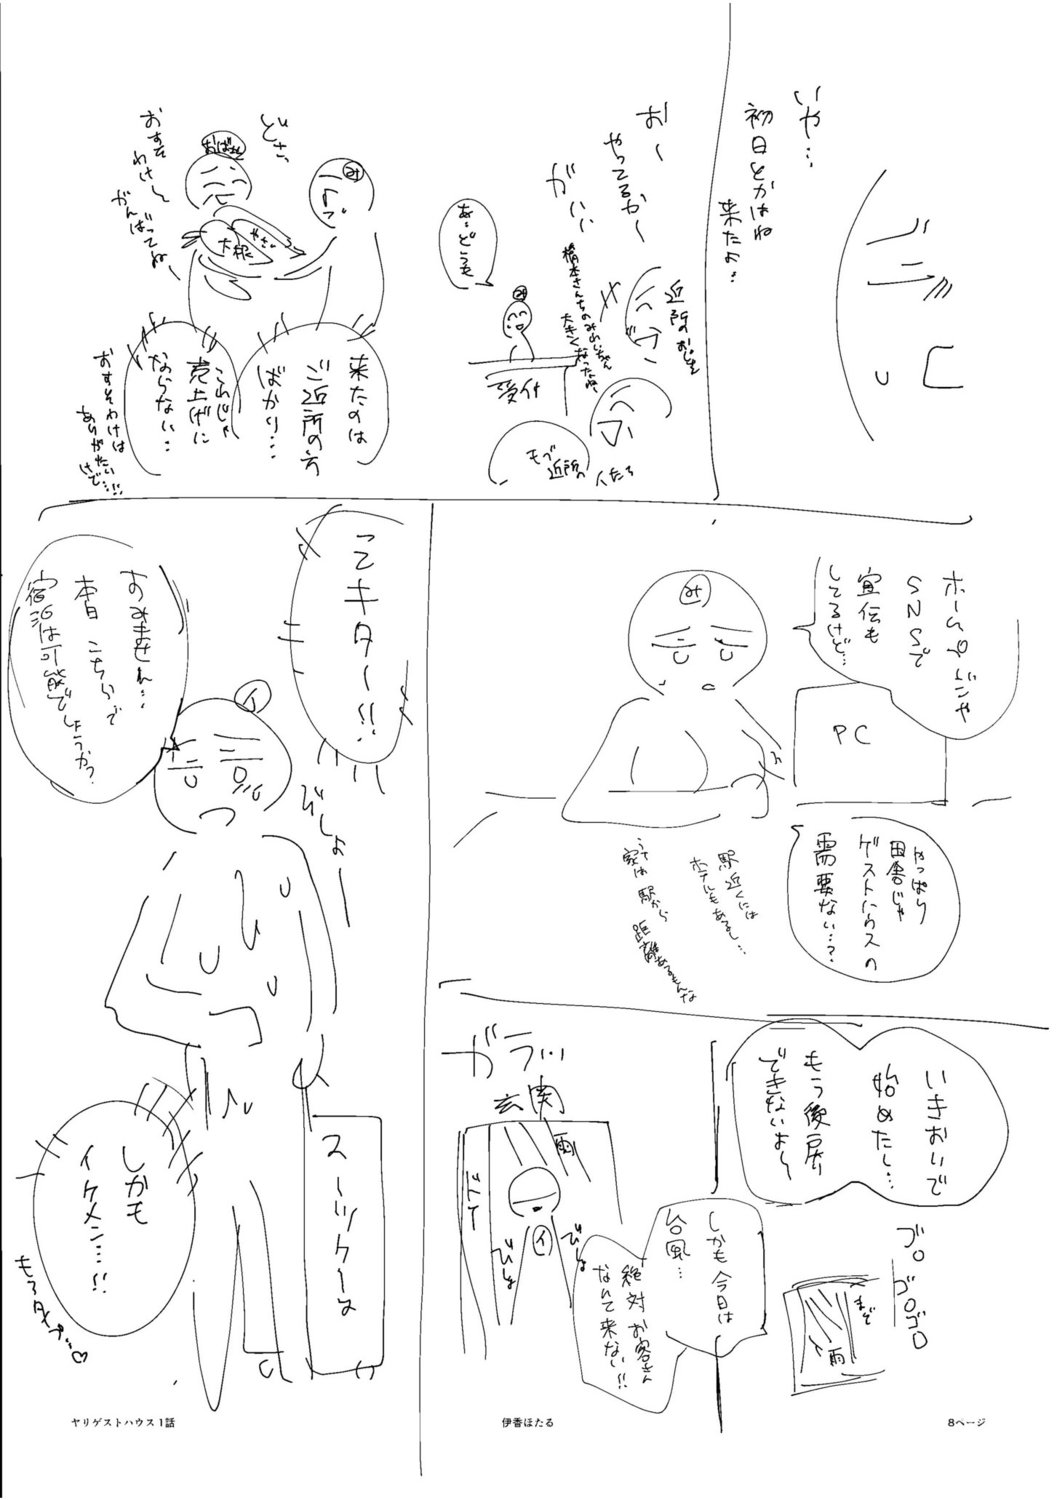 いや…
初日とかはね
来たよ…
おー
やってるかー
がい
近所の
橋本さんちの
大きくなったね
あ…どうも
み
受付
もブ
近所の
人たち
どさっ
み
おばさん
やさい
大根
おすそ
わけ〜
がんばってね〜
来たのは
ご近所の方
ばかり…
これじゃ
売上げに
ならない…
おすそわけは
ありがたい
けど…!!
ホームページや
SNSで
宣伝も
してるけど…
み
PC
やっぱり
田舎じゃ
ゲストハウスの
需要ない…?
駅近くには
ホテルもあるし…
うては
駅から
距離あるもんな
いきおいで
始めたし…
もう後戻り
できないよ〜
ゴロ
ゴロゴロ
まど
雨
しかも今日は
台風…
絶対お客さん
なんて来ない!!
ガラッ…
玄関
雨
イ
びしょ
びしょ
ってキター!!
すみません…
本日こちらで
宿泊は可能でしょうか?
イ
びしょ
スーツケース
しかも
イケメン…!!
もろタイプ…♡
ヤリゲストハウス1話
伊香ほたる
8ページ